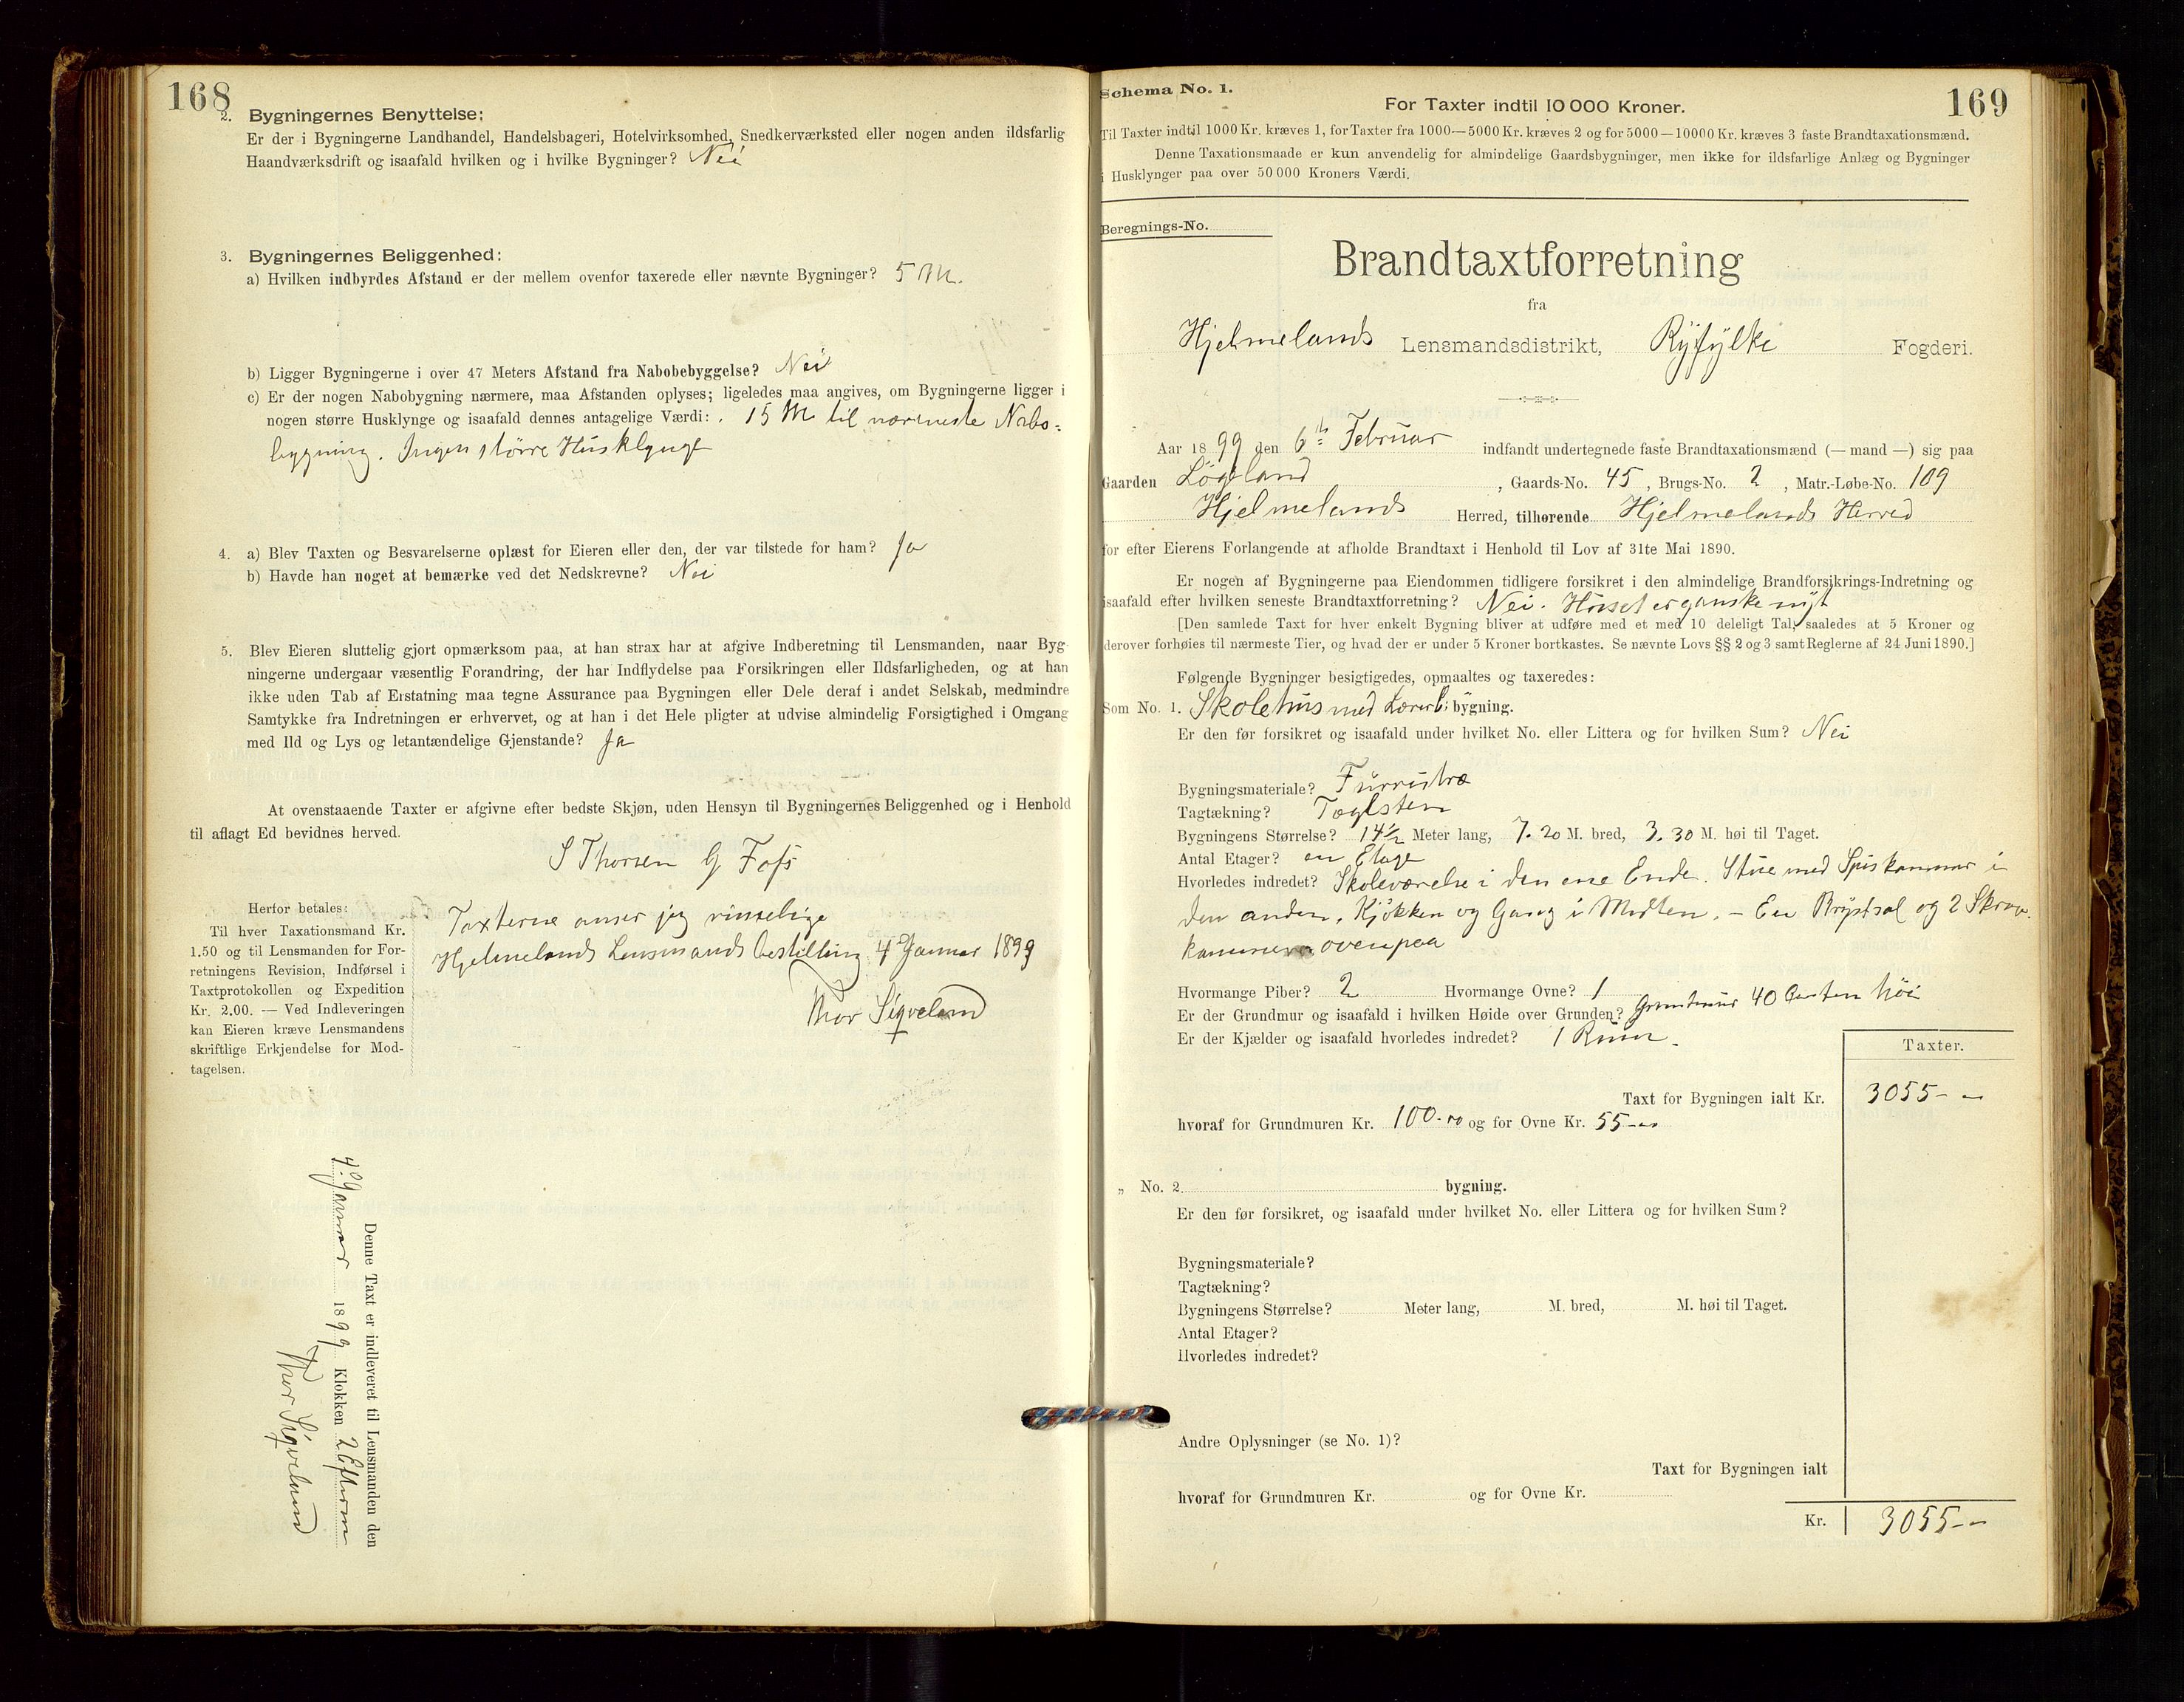 168
2. Bygningernes Benyttelse:
Er der i Bygningerne Landhandel, Handelsbageri, Hotelvirksomhed, Snedkerværksted eller nogen anden ildsfarlig
Haandværksdrift og isaafald hvilken og i hvilke Bygninger? Nei
3. Bygningernes Beliggenhed:
a) Hvilken indbyrdes Afstand er der mellem ovenfor taxerede eller nævnte Bygninger? 5 M.
b) Ligger Bygningerne i over 47 Meters Afstand fra Nabobebyggelse? Nei
c) Er der nogen Nabobygning nærmere, maa Afstanden oplyses; ligeledes maa angives, om Bygningerne ligger i
nogen større Husklynge og isaafald dennes antagelige Værdi: . 15 M til nærmeste Nabo-
bygning. Ingen större Husklynge
4. a) Blev Taxten og Besvarelserne oplæst for Eieren eller den, der var tilstede for ham? Ja
b) Havde han noget at bemærke ved det Nedskrevne? Nei
5. Blev Eieren sluttelig gjort opmærksom paa, at han strax har at afgive Indberetning til Lensmanden, naar Byg-
ningerne undergaar væsentlig Forandring, der har Indflydelse paa Forsikringen eller Ildsfarligheden, og at han
ikke uden Tab af Erstatning maa tegne Assurance paa Bygningen eller Dele deraf i andet Selskab, medmindre
Samtykke fra Indretningen er erhvervet, og at han i det Hele pligter at udvise almindelig Forsigtighed i Omgang
med Ild og Lys og letantændelige Gjenstande? Ja
At ovenstaaende Taxter er afgivne efter bedste Skjøn, uden Hensyn til Bygningernes Beliggenhed og i Henhold
til aflagt Ed bevidnes herved.
S Thorsen G Fofs
Herfor betales:
Til hver Taxationsmand Kr.
1.50 og til Lensmanden for For-
retningens Revision, Indførsel i
Taxtprotokollen og Expedition
Kr. 2.00. — Ved Indleveringen
kan Eieren kræve Lensmandens
skriftlige Erkjendelse for Mod-
tagelsen.
Taxterne anser jeg rimelige
Hjelmelands Lensmandsbestilling 4 Januar 1899
Thor Sigveland
Denne Taxt er indleveret til Lensmanden den
4. Januar 1899 Klokken 2 Efterm
Thor Sigveland
169
Schema No. 1.
For Taxter indtil 10 000 Kroner.
Til Taxter indtil 1000 Kr. kræves 1, for Taxter fra 1000—5000 Kr. kræves 2 og for 5000—10000 Kr. kræves 3 faste Brandtaxationsmænd.
Denne Taxationsmaade er kun anvendelig for almindelige Gaardsbygninger, men ikke for ildsfarlige Anlæg og Bygninger
i Husklynger paa over 50 000 Kroners Værdi.
Beregnings-No.
Brandtaxtforretning
fra
Hjelmelands Lensmandsdistrikt, Ryfylke Fogderi.
Aar 1899 den 6te Februar indfandt undertegnede faste Brandtaxationsmænd (—mand—) sig paa
Gaarden , Gaards-No. 45, Brugs-No. 2, Matr.-Løbe-No. 109
Hjelmelands Herred, tilhørende Hjelmelands Herred
for efter Eierens Forlangende at afholde Brandtaxt i Henhold til Lov af 31te Mai 1890.
Er nogen af Bygningerne paa Eiendommen tidligere forsikret i den almindelige Brandforsikrings-Indretning og
isaafald efter hvilken seneste Brandtaxtforretning? Nei. Huset er ganske nyt
[Den samlede Taxt for hver enkelt Bygning bliver at udføre med et med 10 deleligt Tal, saaledes at 5 Kroner og
derover forhøies til nærmeste Tier, og hvad der er under 5 Kroner bortkastes. Se nævnte Lovs §§ 2 og 3 samt Reglerne af 24 Juni 1890.]
Følgende Bygninger besigtigedes, opmaaltes og taxeredes:
Som No. 1. Skolehus med Lærerb: bygning.
Er den før forsikret og isaafald under hvilket No. eller Littera og for hvilken Sum? Nei
Bygningsmateriale? Furrutræ
Tagtækning? Taglsten
Bygningens Størrelse? 14½ Meter lang, 7.20 M. bred, 3.30 M. høi til Taget.
Antal Etager? en Etage
Hvorledes indredet? Skoleværelse i den ene Ende. Stue med Spiskammer i
den anden. Kjökken og Gang i Midten. – En og 2
ovenpaa
Hvormange Piber? 2 Hvormange Ovne? 1
Er der Grundmur og isaafald i hvilken Høide over Grunden? Grundmur 40 höi
Er der Kjælder og isaafald hvorledes indredet? 1 Rum.
Taxter.
Taxt for Bygningen ialt Kr. 3055-
hvoraf for Grundmuren Kr. 100.00 og for Ovne Kr. 55
„ No. 2. bygning.
Er den før forsikret, og isaafald under hvilket No. eller Littera og for hvilken Sum?
Bygningsmateriale?
Tagtækning?
Bygningens Størrelse? Meter lang, M. bred, M. høi til Taget.
Antal Etager?
Hvorledes indredet?
Andre Oplysninger (se No. 1)?
Taxt for Bygningen ialt
hvoraf for Grundmuren Kr. og for Ovne Kr.
Kr. 3055-